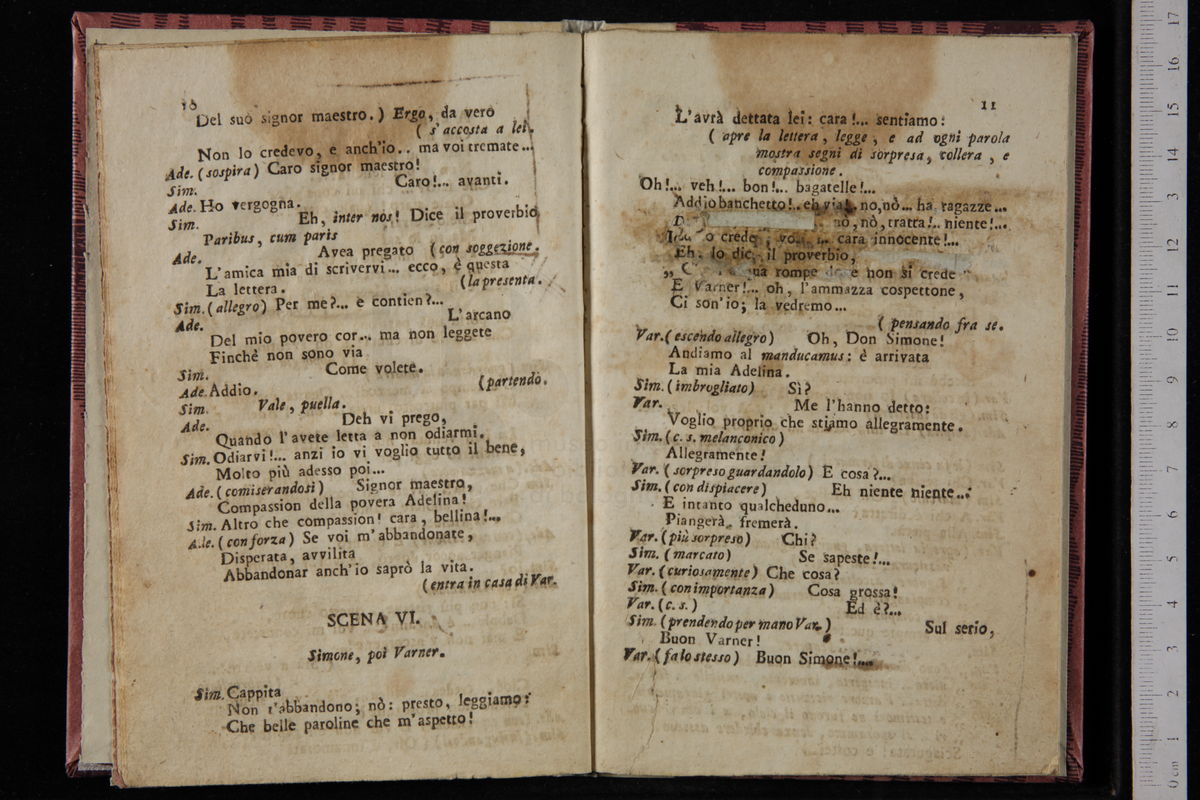 10
Del suo signor maestro.) Ergo, da vero
( s'accosta a lei.
Non lo credevo, e anch'io.. ma voi tremate...
Ade. (sospira) Caro signor maestro!
Sim. Caro!... avanti.
Ade. Ho vergogna.
Sim. Eh, inter nos! Dice il proverbio
Paribus, cum paris
Ade. Avea pregato (con soggezione.
L'amica mia di scrivervi... ecco, è questa
La lettera. (la presenta.
Sim. (allegro) Per me?... e contien?...
Ade. L'arcano
Del mio povero cor... ma non leggete
Finchè non sono via
Sim. Come volete.
Ade. Addio. (partendo.
Sim. Vale, puella.
Ade. Deh vi prego,
Quando l'avete letta a non odiarmi.
Sim. Odiarvi!... anzi io vi voglio tutto il bene,
Molto più adesso poi...
Ade. (comiserandosi) Signor maestro,
Compassion della povera Adelina!
Sim. Altro che compassion! cara, bellina!...
Ade. (con forza) Se voi m'abbandonate,
Disperata, avvilita
Abbandonar anch'io saprò la vita.
(entra in casa di Var.
SCENA VI.
Simone, poi Varner.
Sim. Cappita
Non t'abbandono; nò: presto, leggiamo:
Che belle paroline che m'aspetto!
11
L'avrà dettata lei: cara!... sentiamo:
( apre la lettera, legge, e ad ogni parola
mostra segni di sorpresa, collera, e
compassione.
Oh!... veh!... bon!... bagatelle!...
Addio banchetto!.. eh via!.. no, nò... ha ragazze...
nò, nò, tratta!.. niente!...
o crede cara innocente!...
Eh, lo dice il proverbio,
rompe e non si crede "
E Varner!... oh, l'ammazza cospettone,
Ci son'io; la vedremo...
( pensando fra se.
Var. (escendo allegro) Oh, Don Simone!
Andiamo al manducamus: è arrivata
La mia Adelina.
Sim. (imbrogliato) Sì?
Var. Me l'hanno detto:
Voglio proprio che stiamo allegramente.
Sim. (c. s. melanconico)
Allegramente!
Var. (sorpreso guardandolo) E cosa?...
Sim. (con dispiacere) Eh niente niente...
E intanto qualcheduno...
Piangerà, fremerà.
Var. (più sorpreso) Chi?
Sim. (marcato) Se sapeste!...
Var. (curiosamente) Che cosa?
Sim. (con importanza) Cosa grossa!
Var. (c. s.) Ed è?...
Sim. (prendendo per mano Var.) Sul serio,
Buon Varner!
Var. (fa lo stesso) Buon Simone!...